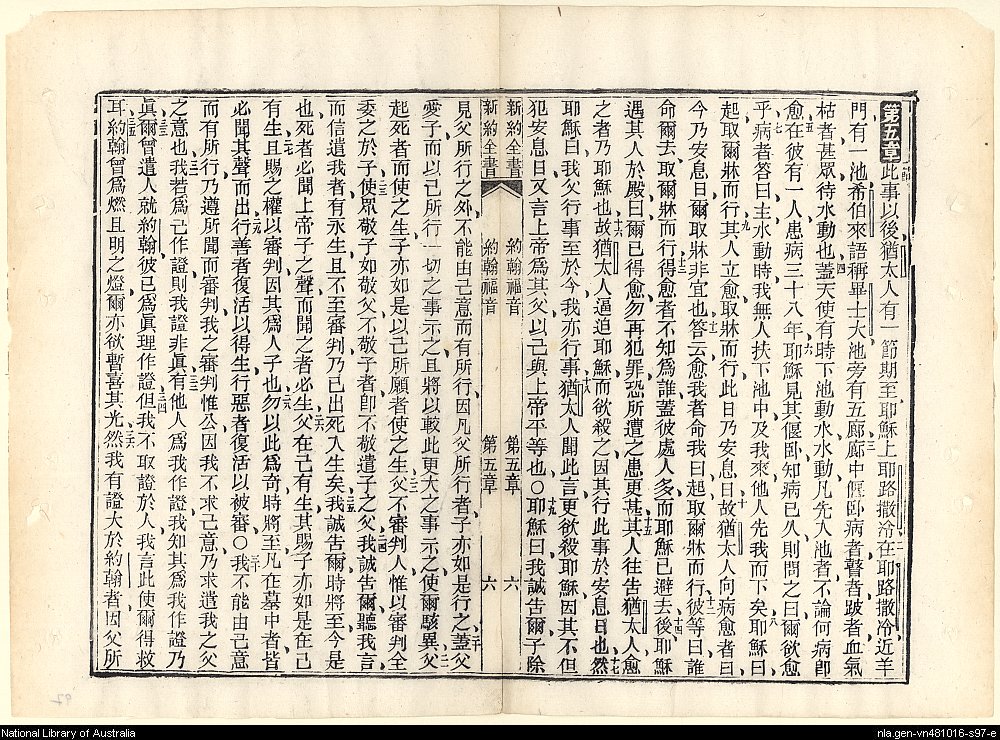 第五章此事以後猶太人有一節期至耶穌上耶路撒冷在耶路撒冷近羊
門有一池希伯來語稱畢士大池旁有五廊廊中偃臥病者瞽者跛者血氣
枯者甚眾待水動也蓋天使有時下池動水水動凡先入池者不論何病即
愈在彼有一人患病三十八年耶穌見其偃臥知病已久則問之曰爾欲愈
乎病者答曰主水動時我無人扶下池中及我來他人先我而下矣耶穌曰
起取爾牀而行其人立愈取牀而行此日乃安息日故猶太人向病愈者曰
今乃安息日爾取牀非宜也答云愈我者命我曰起取爾牀而行彼等曰誰
命爾去取爾牀而行得愈者不知為誰蓋彼處人多而耶穌已避去後耶穌
遇其人於殿曰爾已得愈勿再犯罪恐所遭之患更甚其人往告猶太人愈
之者乃耶穌也故猶太人逼迫耶穌而欲殺之因其行此事於安息日也然
耶穌曰我父行事至於今我亦行事猶太人聞此言更欲殺耶穌因其不但
犯安息日又言上帝為其父以己與上帝平等也〇耶穌曰我誠告爾子除
新約全書 約翰福音 第五章 六
新約全書 約翰福音 第五章 六
見父所行之外不能由己意而有所行因凡父所行者子亦如是行之蓋父
愛子而以己所行一切之事示之且將以較此更大之事示之使爾駭異父
起死者而使之生子亦如是以己所願者使之生父不審判人惟以審判全
委之於子使眾敬子如敬父不敬子者即不敬遣子之父我誠告爾聽我言
而信遣我者有永生且不至審判乃已出死入生矣我誠告爾時將至今是
也死者必聞上帝子之聲而聞之者必生父在己有生其賜子亦如是在己
有生且賜之權以審判因其為人子也勿以此為奇時將至凡在墓中者皆
必聞其聲而出行善者復活以得生行惡者復活以被審〇我不能由己意
而有所行乃遵所聞而審判我之審判惟公因我不求己意乃求遣我之父
之意也我若為己作證則我證非真有他人為我作證我知其為我作證乃
真爾曾遣人就約翰彼已為真理作證但我不取證於人我言此使爾得救
耳約翰曾為燃且明之燈爾亦欲暫喜其光然我有證大於約翰者因父所
National Library of Australia
nla.gen-vn481016-s97-e